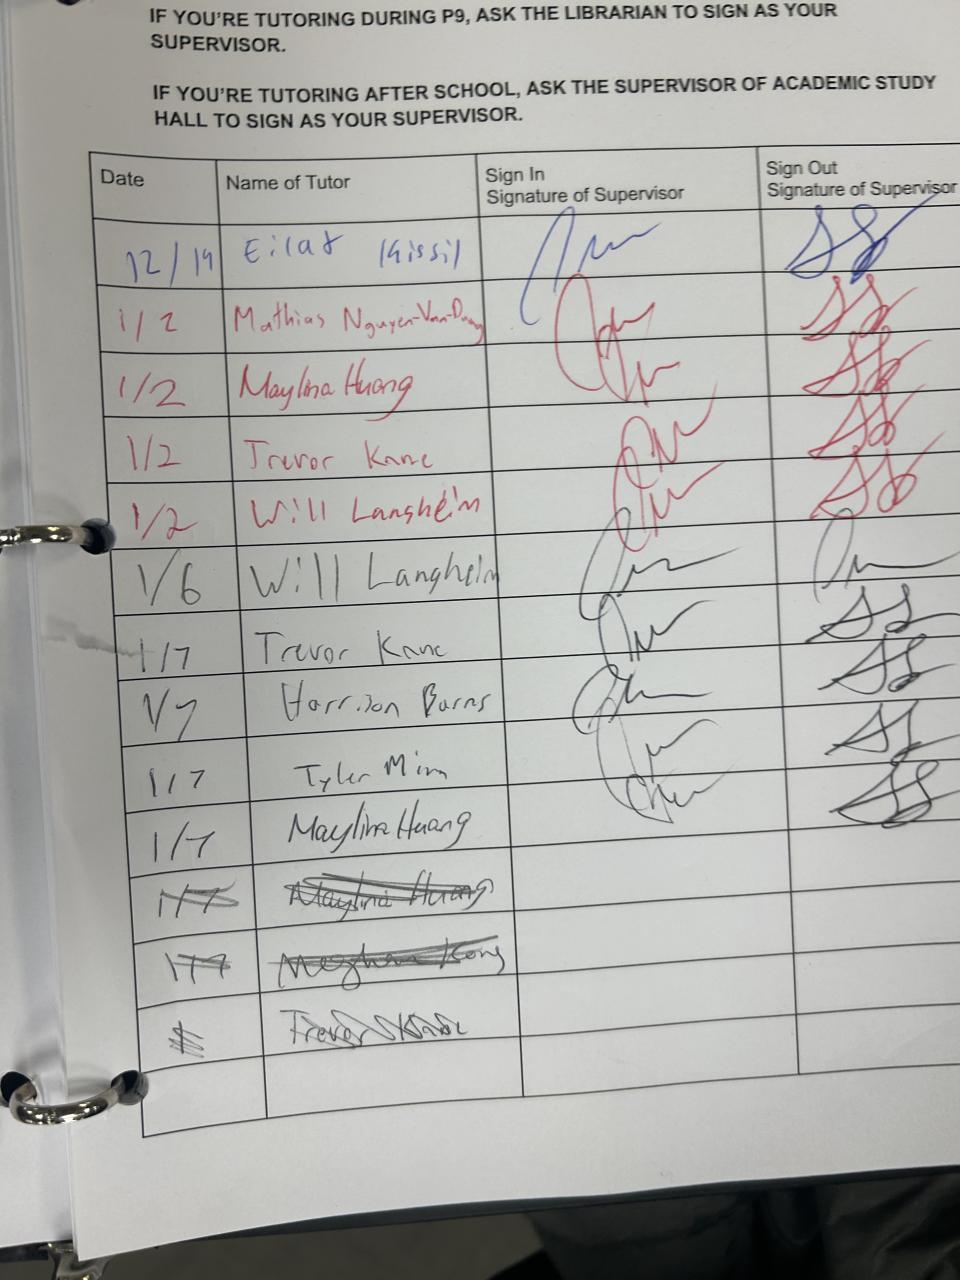 IF YOU'RE TUTORING DURING P9, ASK THE LIBRARIAN TO SIGN AS YOUR
SUPERVISOR.
IF YOU'RE TUTORING AFTER SCHOOL, ASK THE SUPERVISOR OF ACADEMIC STUDY
HALL TO SIGN AS YOUR SUPERVISOR.
Date
Name of Tutor
Sign In
Signature of Supervisor
Sign Out
Signature of Supervisor
12/19 Eilat Kissil
1/2 Mathias Nguyen-Van-Duong
1/2 Maylina Huang
1/2 Trevor Kane
1/2 Will Langheim
1/6 Will Langheim
1/7 Trevor Kane
1/7 Harrison Burns
1/7 Tyler Mim
1/7 Maylina Huang
1/7 Maylina Huang
1/7 Meghan Kong
Trevor Kane